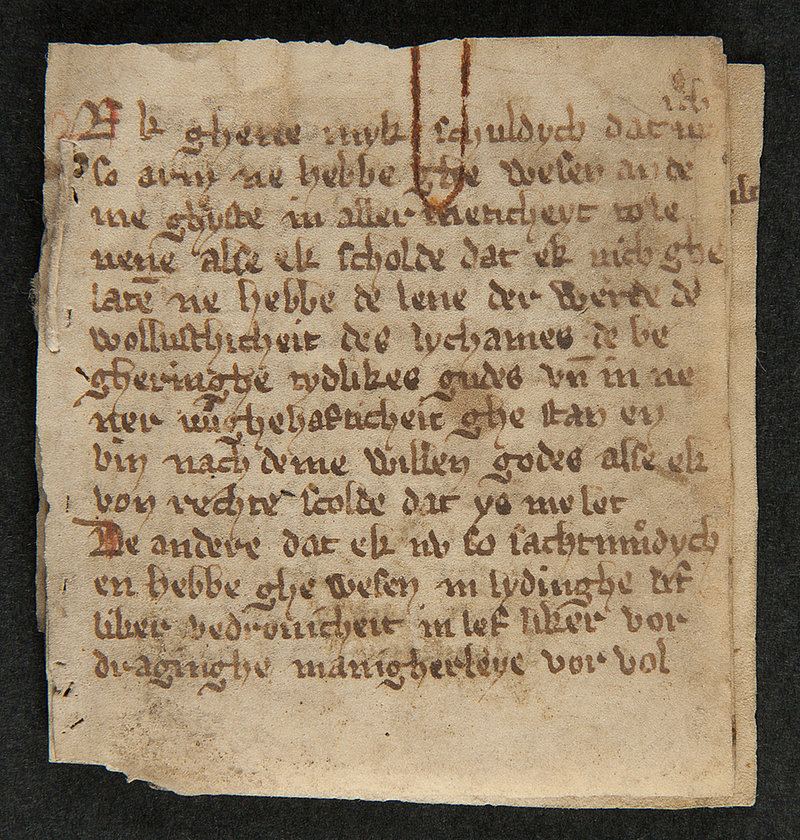 Ek gheue myk schuldych dat
so arm ne hebbe ghe wesen an de
me gheyste in aller
nene alse ek scholde dat ek nich ghe
laten ne hebbe de leue der werde de
wollusthicheit des lychames de be
gheringhe tydlikes gudes vn̄ in
ghe stan en
bin nach deme willen godes alse ek
von rechte scolde dat ys me let
De andere dat ek nv so sachtmůdych
en hebbe ghe wesen in lydinghe lif
liker bedrouicheit in lef liker vor
draginghe manigherleye vor vol